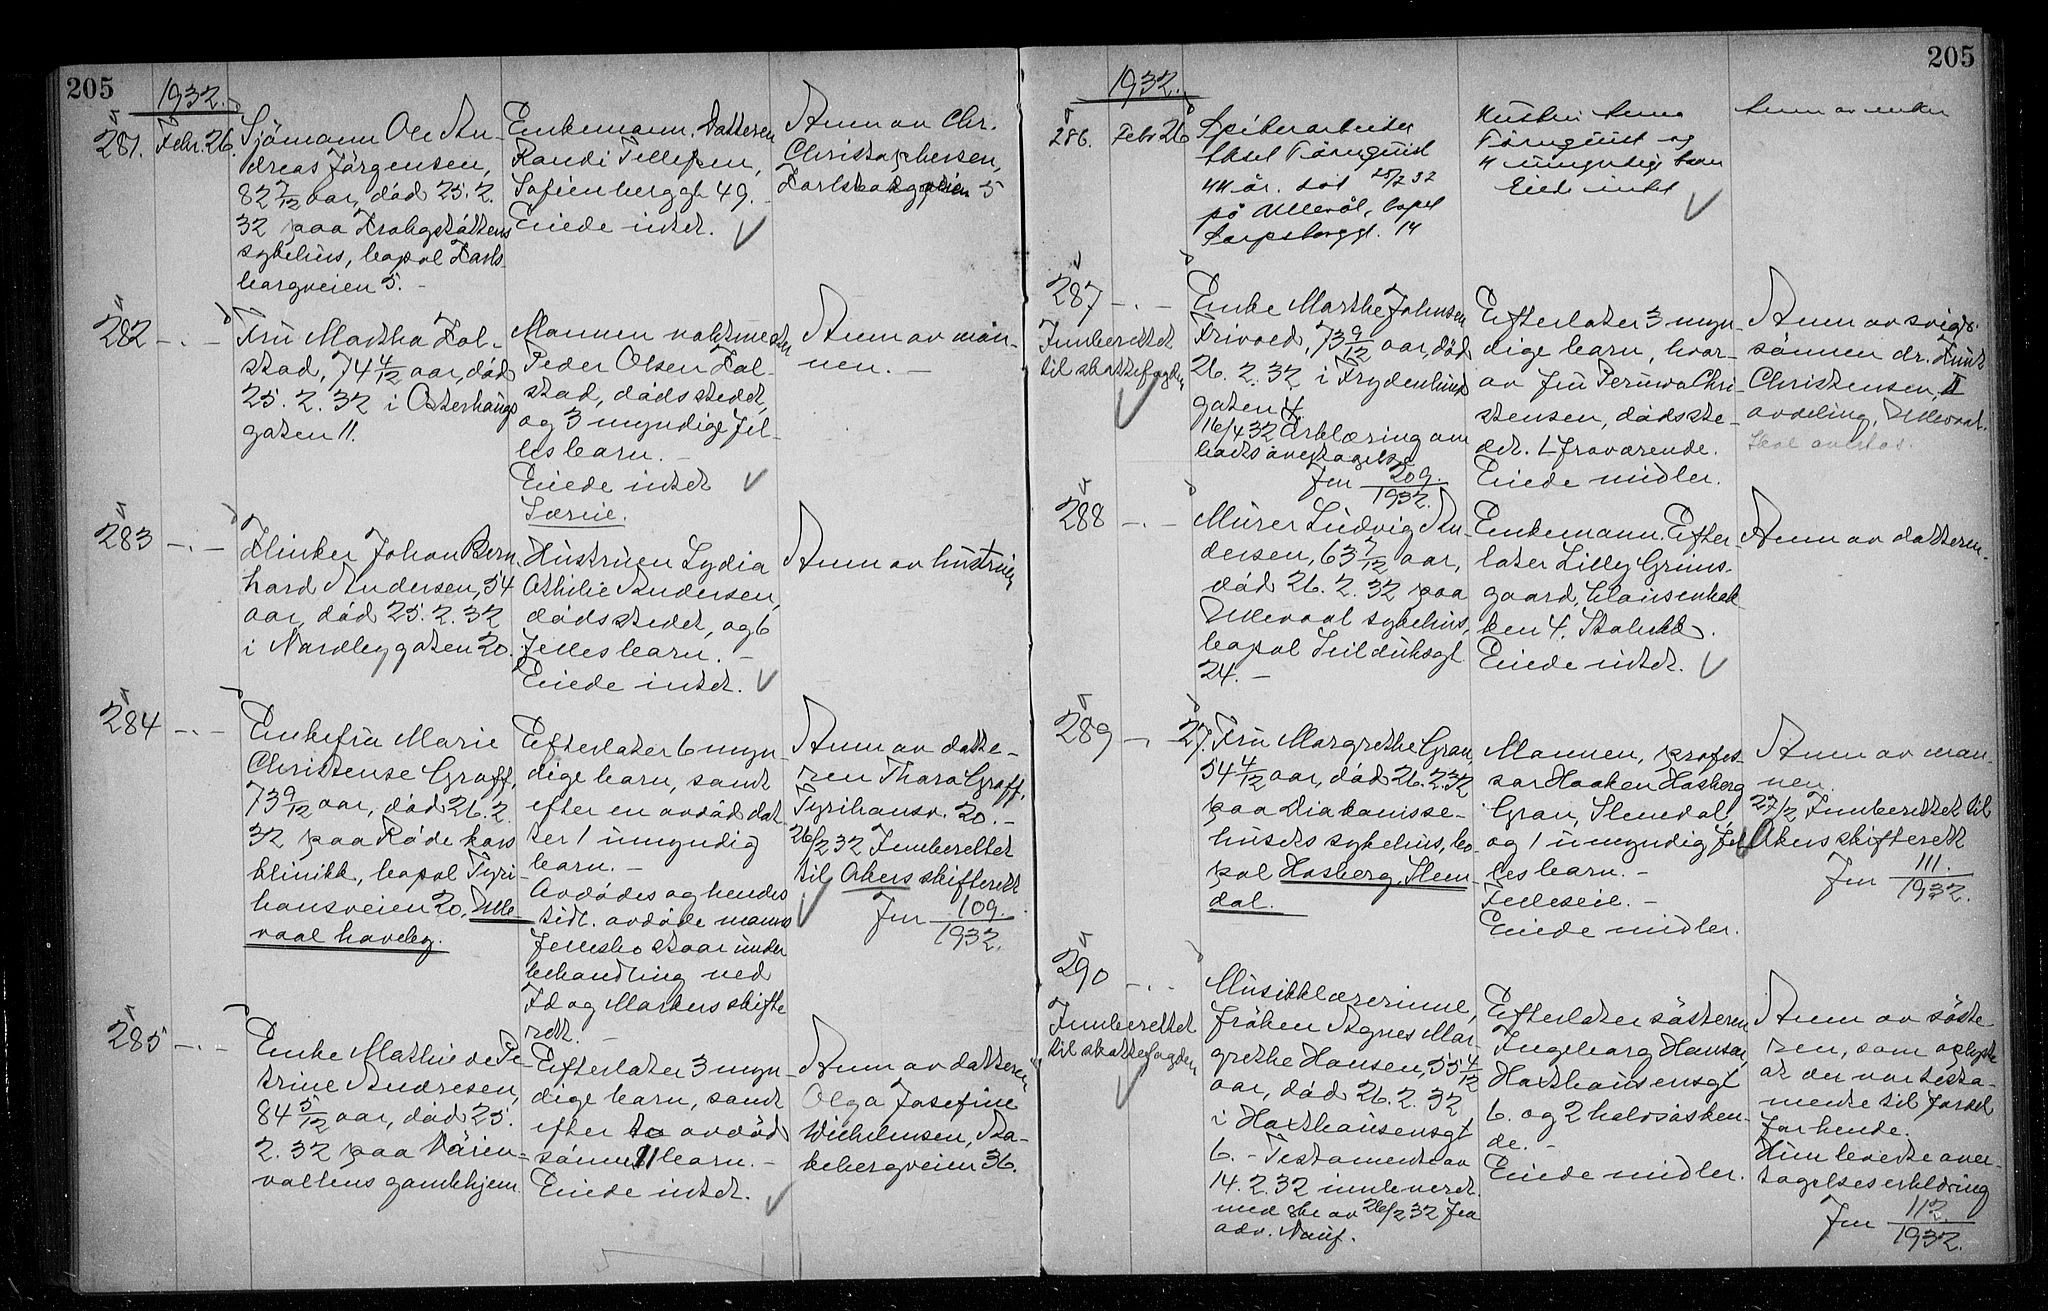 205
1932.
281. Febr. 26.
Sjömann Ole An-
dreas Jörgensen,
82 7/12 aar, död 25.2.
32 paa Krohgstöttens
sykehus, bopel Karls-
borgveien 5. -
Enkemann. Datteren
Randi Tellefsen,
Sofienberggt 49. -
Eiede intet.
Anm av Chr.
Christophersen,
Karlsborgveien 5
282 -.-
Fru Martha Kol-
stad, 74 4/12 aar, död
25.2.32 i Osterhaugs
gaten 11.
Mannen vaktmester
Peder Olsen Kol-
stad, dödsstedet,
og 3 myndige fel-
les barn. -
Eiede intet
Særeie.
Anm av man-
nen. -
283 -.-
Klinker Johan Bern
hard Andersen, 54
aar, död 25.2.32
i Nordbygaten 20.
Hustruen Lydia
Othilie Andersen,
dödsstedet, og 6
felles barn. -
Eiede intet.
Anm av hustruen
284 -.-
Enkefru Marie
Christense Graff,
73 9/12 aar, död 26.2.
32 paa Röde kors
klinikk, bopel Tyri-
hansveien 20, Ulle
vaal haveby.
Efterlater 6 myn-
dige barn, samt
efter en avdöd dat-
ter 1 umyndig
barn. -
Avdödes og hendes
tidl. avdöde manns
fellesbo staar under
behandling ved
Id og Markers skifte
rett. -
Anm av datte-
ren Thora Graff,
Tyrihansv. 20. -
26/2 32 Innberettet
til Akers skifterett
Jnr 109./1932.
285 -.-
Enke Mathilde Pe-
trine Andresen,
84 5/12 aar, död 25.
2.32 paa Vören-
vollens gamlehjem.
Efterlater 3 myn-
dige barn, samt
efter to avdöd
sönner 11 barn. -
Eiede intet.
Anm av datteren
Olga Josefine
Wilhelmsen, Aa-
kebergveien 36.
205
1932.
286. Febr 26
Spikerarbeider
Aksel Törnquist
44 år. död 25/2 32
på Ullevål, bopel
Sarpsborggt. 14
Hustru Anna
Törnquist og
4 umyndige barn
Eiede intet
Anm av enken
287 -.-
Innberettet
til skattefogden
Enke Marthe Johnsen
Trivold, 73 9/12 aar, död
26.2.32 i Frydenlund
gaten 4.
16/4 32 Erklæring om
boets overtagelse
Jnr 209./1932.
Efterlater 3 myn-
dige barn, hvor-
av fru Chri-
stensen, dödsste-
det. 1 fraværende.
Eiede midler.
Anm av sviger-
sönnen dr. Knut
Christensen, II
avdeling, Ullevaal.
288 -.-
Murer Ludvig An-
dersen, 63 7/12 aar,
död 26.2.32 paa
Ullevaal sykehus,
bopel Seilduksgt
24. -
Enkemann. Efter-
later Lilly Grims-
gaard, Clausenbak-
ken 4.
Eiede intet.
Anm av datteren.
289 - 27.
Fru Margrethe Gran,
54 4/12 aar, död 26.2.32
paa Diakonisse-
husets sykehus, bo-
pel Hosberg, Slem-
dal.
Mannen, profes-
sor Haaken Hasberg
Gran, Slemdal,
og 1 umyndig fel
les barn. -
Felleseie. -
Eiede midler.
Anm av man-
nen.
27/2 Innberettet til
Akers skifterett
Jnr 111./1932.
290 -.-
Innberettet
til skattefogden
Musikklærerinne,
fröken Agnes Mar-
grethe Hansen, 55 4/12
aar, död 26.2.32
i Haxthausensgt
6. - Testamente av
14.2.32 innleveret
med skr av 26/2 32 fra
adv. Nauf.
Efterlater sösteren
Ingeborg Hansen,
Haxthausensgt
6. og 2 halvsösken-
de. -
Eiede midler.
Anm av söste-
ren, som oplyste
at der var testa-
mente til fordel
for hende.
Hun leverte over-
tagelseserklæring
Jnr 112/1932.